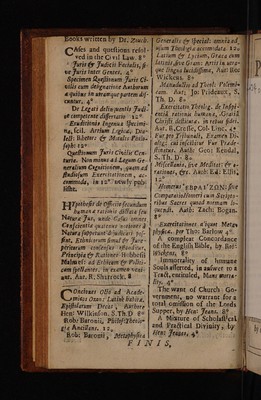 Books written by Dr. Zouch.
CAses and questions resolved
in the Civil Law. 8°
Juris & Judicii Fecialis, sive
Juris inter Gentes. 4°
Specimen Quæstionum Juris Civilis
cum designatione Authorum
à quibus in utramque partem disceptatur.
4°
De Legati delinquentis Judice
competente dissertatio 12°
Eruditionis Ingenuæ Specimina,
scil. Artium Logicæ, Dialect:
Rhetor: & Moralis Philosoph:
12°
Quæstionum Juris Civilis Centuria.
Non minus ad Legum Generalium
Cognitionem, quam ad
studiosum Exercitationem, accommoda,
in 12° newly published.
HYpothesis de Officiis secundum
humanæ rationis dictata seu
Naturæ Jus, unde Casus omnes
Conscientiæ quatenus notiones à
Naturâ suppetunt dijudicari possint,
Ethnicorum simul & Jureperitorum
consensus ostenditur,
Principia & Rationes Hobbesii
Malmesb: ad Ethicam & Politicam
spectantes, in examen veniunt.
Aut. R. Sharrock. 8°
COnciones Octo ad Academicos
Oxon: Latinè habitæ,
Epistolarum Decas, Authore
Hen: Wilkinson. S.Th.D 8°
Rob: Baronii, Philos. Theologiæ
Ancillans. 12.
Rob: Baronii, Metaphysica
Generalis & Specialis omnia ad
usum Theologiæ accommodata. 12.
Latium & Lyceum, Græca cum
latinis, sive Gram: Artis in utraque
lingua lucidissima, Aut: Rob:
Wickens. 8°
Manuductio ad Theol: Polemicam.
Aut: Jo: Prideaux, S.
Th. D. 8°
Exercitatio Theolog: de Insipientia
rationis humanæ, Gratiâ
Christi destitutæ, in rebus fidei.
Aut. R.Cresse, Col: Linc. 4°
Fur pro Tribunali, Examen Dialog:
cui inscribitur Fur Prædestinatus.
Auth: Geor: Kendal,
S.Th. D. 8°
Miscellanei, sive Meditat: &
rationes, &c. Auth Ed: Ellis,
12°
Homerus ἙΒΡΑΪΖΩΝ, sive
Comparatio Homeri cum Scriptoribus
Sacris quoad normam loquendi.
Auth: Zach: Bogan.
8°
Exercitationes aliquot Metaphysicæ.
per Tho: Barlow 4°
A compleat Concordance
of the English Bible, by Rob:
Wickens. 8°
Immortality of humane
Souls asserted, in answer to a
Tract, entituled, Mans mortality.
4°
The want of Church Government,
no warrant for a
total omission of the Lords
Supper, by Hen: Jeans. 8°
A Mixture of Scholastical
and Practical Divinity, by
Hen: Jeanes. 4°
FINIS.